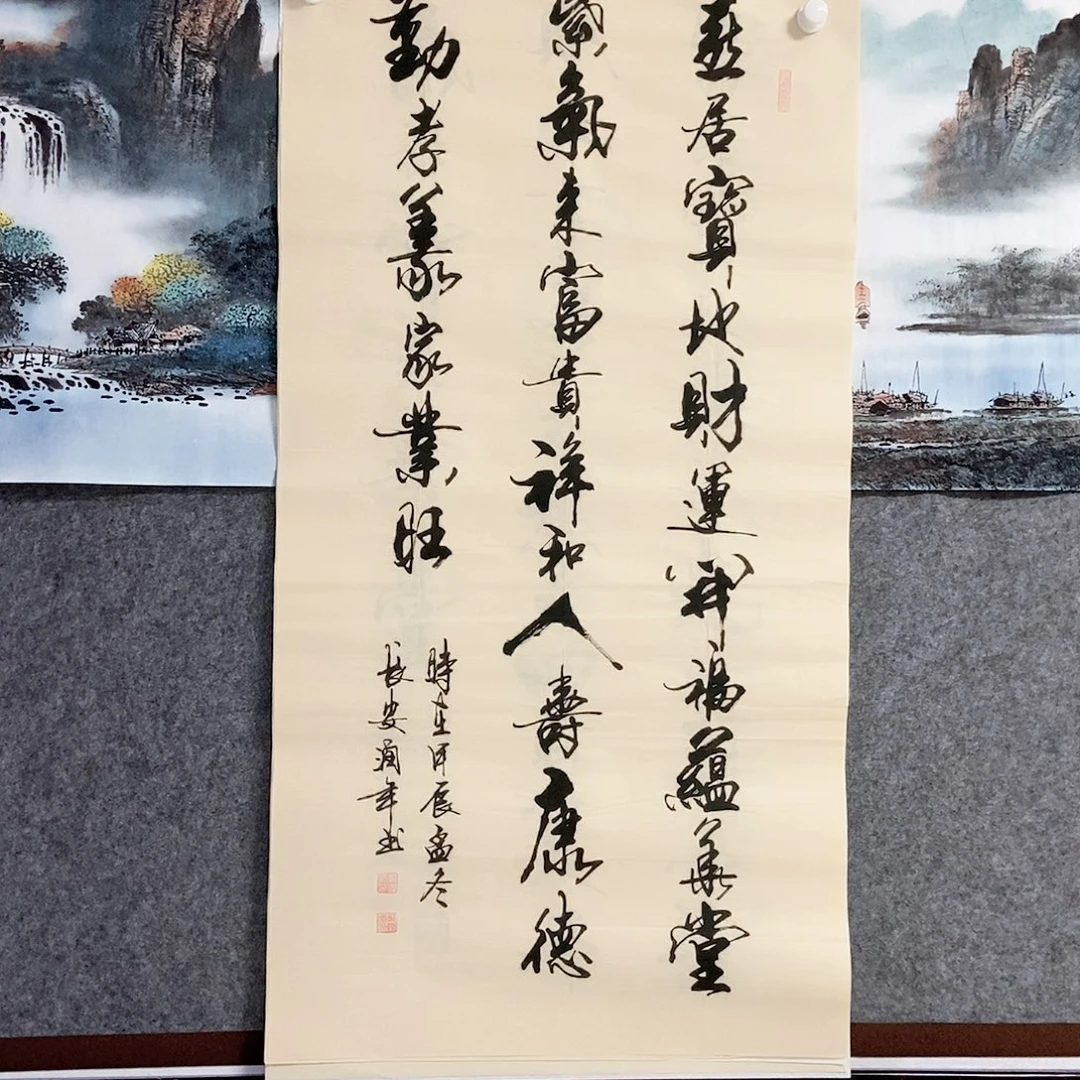 燕居寶地財運升福蘊華堂
紫氣來富貴祥和人壽康德
勤孝義家業旺
時在甲辰孟冬
長安潤年书